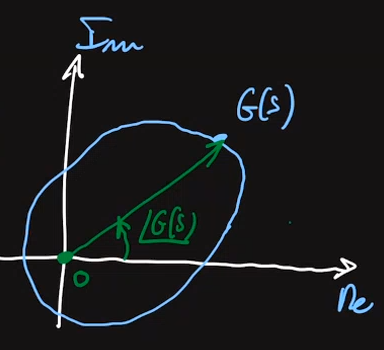 Im
G(s)
∠G(s)
0
Re